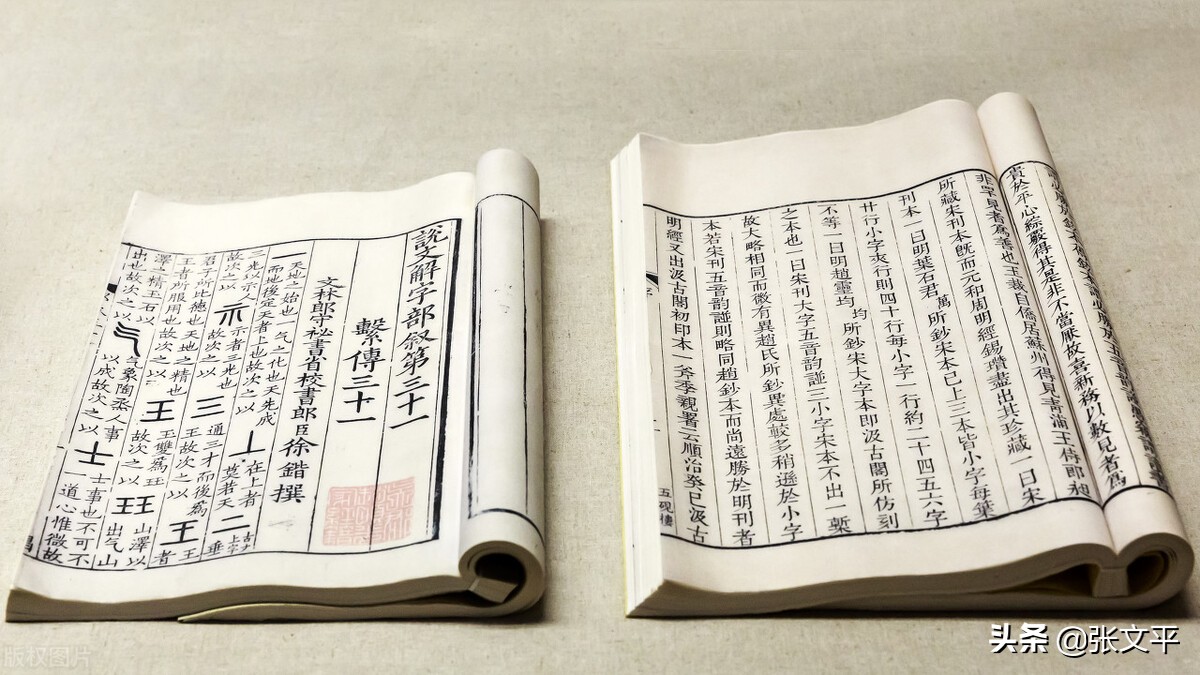 說文解字部敘第三十一
繫傳三十一
文林郎守祕書省校書郎臣徐鍇撰
一 天地之始也一气之化也天先成而地後定天者上也故次之以 丄 在上者莫若天 二 古文上字 垂
三光以示人故次之以 示 示者三光也故次之以 三 通三才而後爲王故次之以 王 王者
君子所比德也天地之精也王者所服用也故次之以 王 王雙爲玨故次之以 玨 山澤以出气山
澤之精玉石以出也故次之以 气 气象陶烝人事以成故次之以 士 士事也不可不一道心惟微故
貴於平心綜覈得其是非不當厭故喜新務以數見者爲
非罕見者爲善也玉裁自僑居蘇州得見靑浦王侍郎昶
所藏宋刊本旣而元和周明經錫瓚盡出其珍藏一曰宋
刊本一曰明葉石君萬所鈔宋本已上三本皆小字每葉
廿行小字夾行則四十行每小字一行約二十四五六字
不等一曰明趙靈均均所鈔宋大字本卽汲古閣所仿刻
之本也一曰宋刊大字五音韵譜三小字宋本不出一槧
故大略相同而微有異趙氏所鈔異處較多稍遜於小字
本若宋刊五音韵譜則略同趙鈔本而尚遠勝於明刊者
明經又出汲古閣初印本一斧季親署云順治癸巳汲古
五硯樓
头条 @张文平
版权图片